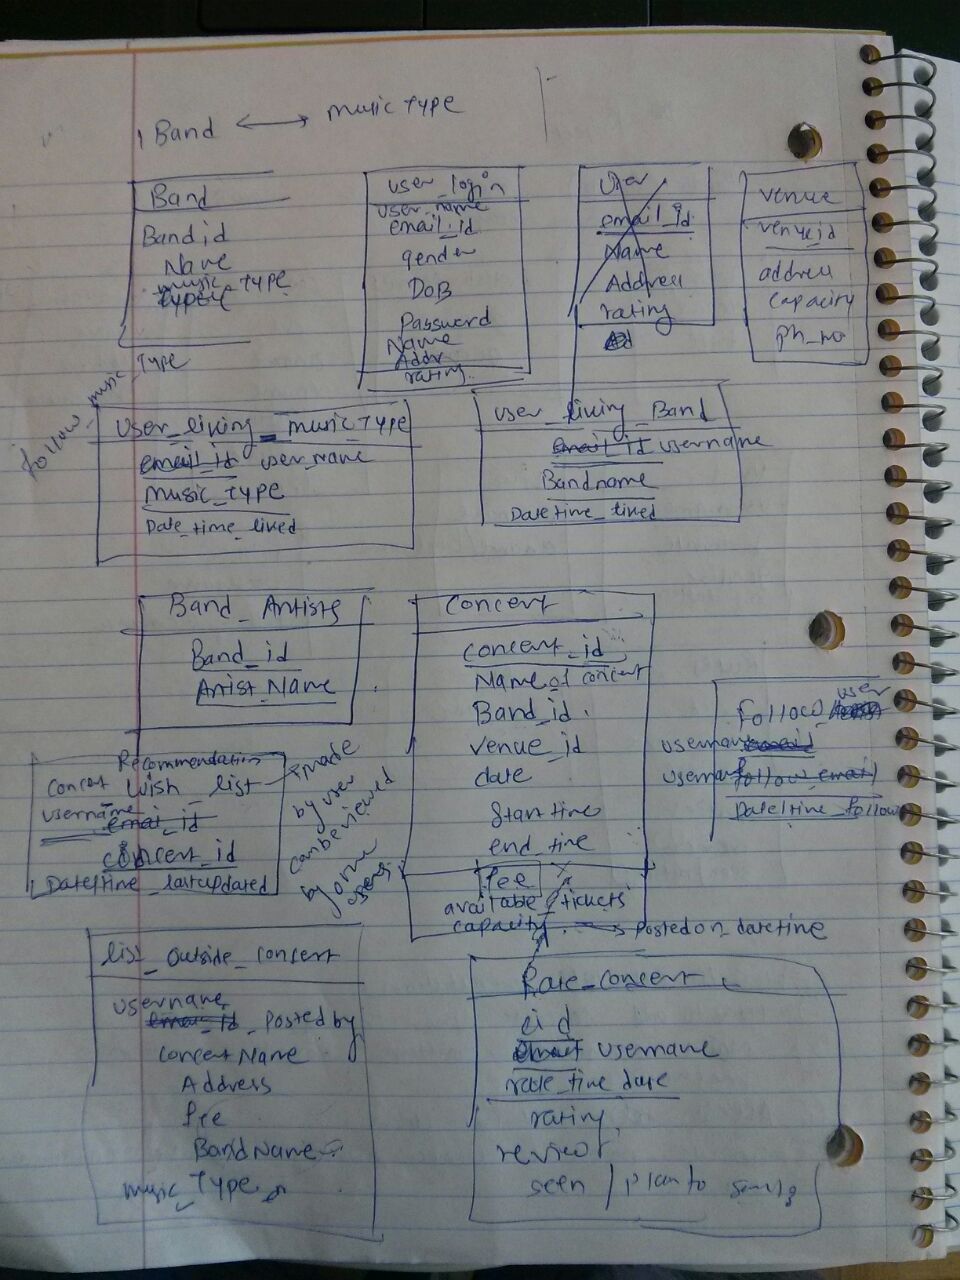 Band ⟷ music TYPE
Band
Band id
Name
music type
user_login
user_name
email_id
gender
DoB
Password
Name
Addr
rating
User
email_id
Name
Address
rating
venue
venue_id
address
capacity
ph_no
follow_music
Type
user_living_music_TYPE
email_id user_name
music_type
Date_time_lived
user_living_Band
email_id username
Bandname
Datetime_lived
Band_Artists
Band_id
Artist_Name
Concert
concert_id
Name of concert
Band_id
venue_id
date
start time
end_time
fee
available_tickets
capacity → Posted on_datetime
follow_user
username
username follow email
Date|time_follow
Recommendation
Concert wish_list
username
email_id
concert_id
Date|time_lastupdated
made
by user
can be viewed
by other
users
list_outside_concert
username
email_id_Posted by
concert Name
Address
fee
Band Name
music_Type
Rate_concert
cid
email username
rate_time date
rating
review
seen / plan to